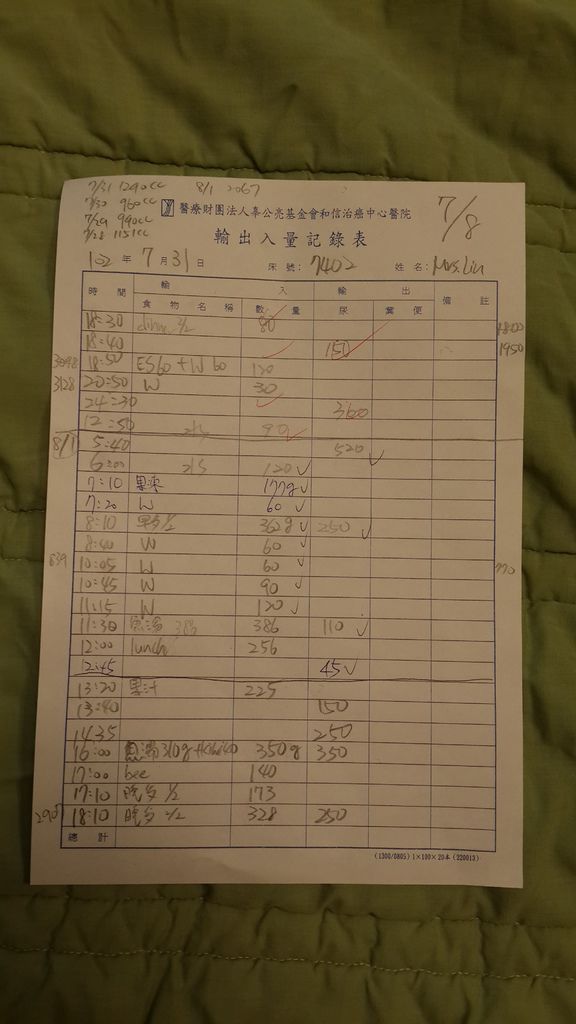 7/31 1290cc 8/1 2067
7/30 960cc
7/29 990cc
7/28 1151cc
7/8
醫療財團法人辜公亮基金會和信治癌中心醫院
輸出入量記錄表
102 年 7 月 31 日 床號: 7402 姓名: Mrs. Liu
時間 輸入 輸出 備註
食物名稱 數量 尿 糞便
18:30 1/2 80 1800
18:40 150 1950
18:50 ES60 + W 60 120
3128 20:50 W 30
24:30 360
12:50 90
8/1 5:40 520
6:00 120
7:10 果凍 177g
7:20 W 60
8:10 早餐1/2 362g 250
8:40 W 60
639 10:05 W 60 770
10:45 W 90
11:15 W 120
11:30 魚湯 386 386 110
12:00 lunch 256
12:45 45
13:20 果汁 225
13:40 150
14:35 250
16:00 魚湯310g 350g 350
17:00 bee 140
17:10 晚餐 1/2 173
290 18:10 晚餐 2/2 328 250
總計
(1300/0805) 1×100×20本 (220013)